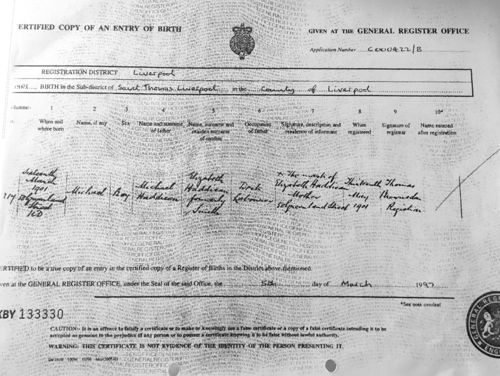 ERTIFIED COPY OF AN ENTRY OF BIRTH
GIVEN AT THE GENERAL REGISTER OFFICE
Application Number C000422/B
REGISTRATION DISTRICT Liverpool
BIRTH in the Sub-district of Saint Thomas Liverpool in the County of Liverpool
1 2 3 4 5 6 7 8 9 10*
When and where born
Name, if any
Sex
Name and surname of father
Name, surname and maiden surname of mother
Occupation of father
Signature, description and residence of informant
When registered
Signature of registrar
Name entered after registration
March 1901
Street
Michael
Boy
Michael
Elizabeth
formerly
Dock Labourer
X The mark of
Elizabeth
Mother
Street
Thirteenth May 1901
Thomas
Registrar
ERTIFIED to be a true copy of an entry in the certified copy of a Register of Births in the District above mentioned.
ven at the GENERAL REGISTER OFFICE, under the Seal of the said Office, the 5th day of March 1997
*See note overleaf
XBY 133330
CAUTION:- It is an offence to falsify a certificate or to make or knowingly use a false certificate or a copy of a false certificate intending it to be
accepted as genuine to the prejudice of any person or to possess a certificate knowing it to be false without lawful authority.
WARNING: THIS CERTIFICATE IS NOT EVIDENCE OF THE IDENTITY OF THE PERSON PRESENTING IT.